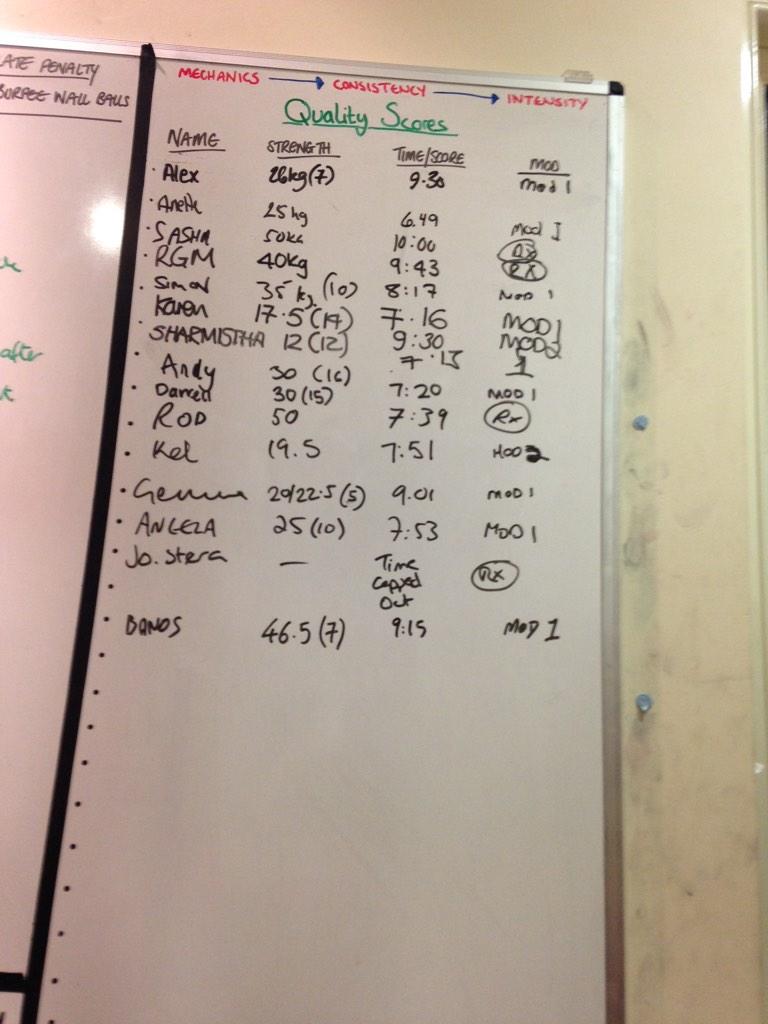 LATE PENALTY
BURPEE WALL BALLS
MECHANICS → CONSISTENCY → INTENSITY
Quality Scores
NAME STRENGTH TIME/SCORE MOD
Alex 26kg(7) 9.30 Mod 1
25kg 6.49 Mod I
SASHA 50kg 10:00 RX
RGM 40kg 9:43 RX
Simon 35kg (10) 8:17 MOD 1
Karen 17.5(17) 7.16 MOD 1
SHARMISTHA 12(12) 9:30 MOD2
Andy 30 (16) 7.13 1
30(15) 7:20 MOD 1
ROD 50 7:39 Rx
Kel 19.5 7:51 MOD 2
Gemma 20/22.5(5) 9.01 MOD 1
ANGELA 25(10) 7:53 MOD 1
Jo. — Time Capped Out RX
46.5(7) 9:15 MOD 1
after